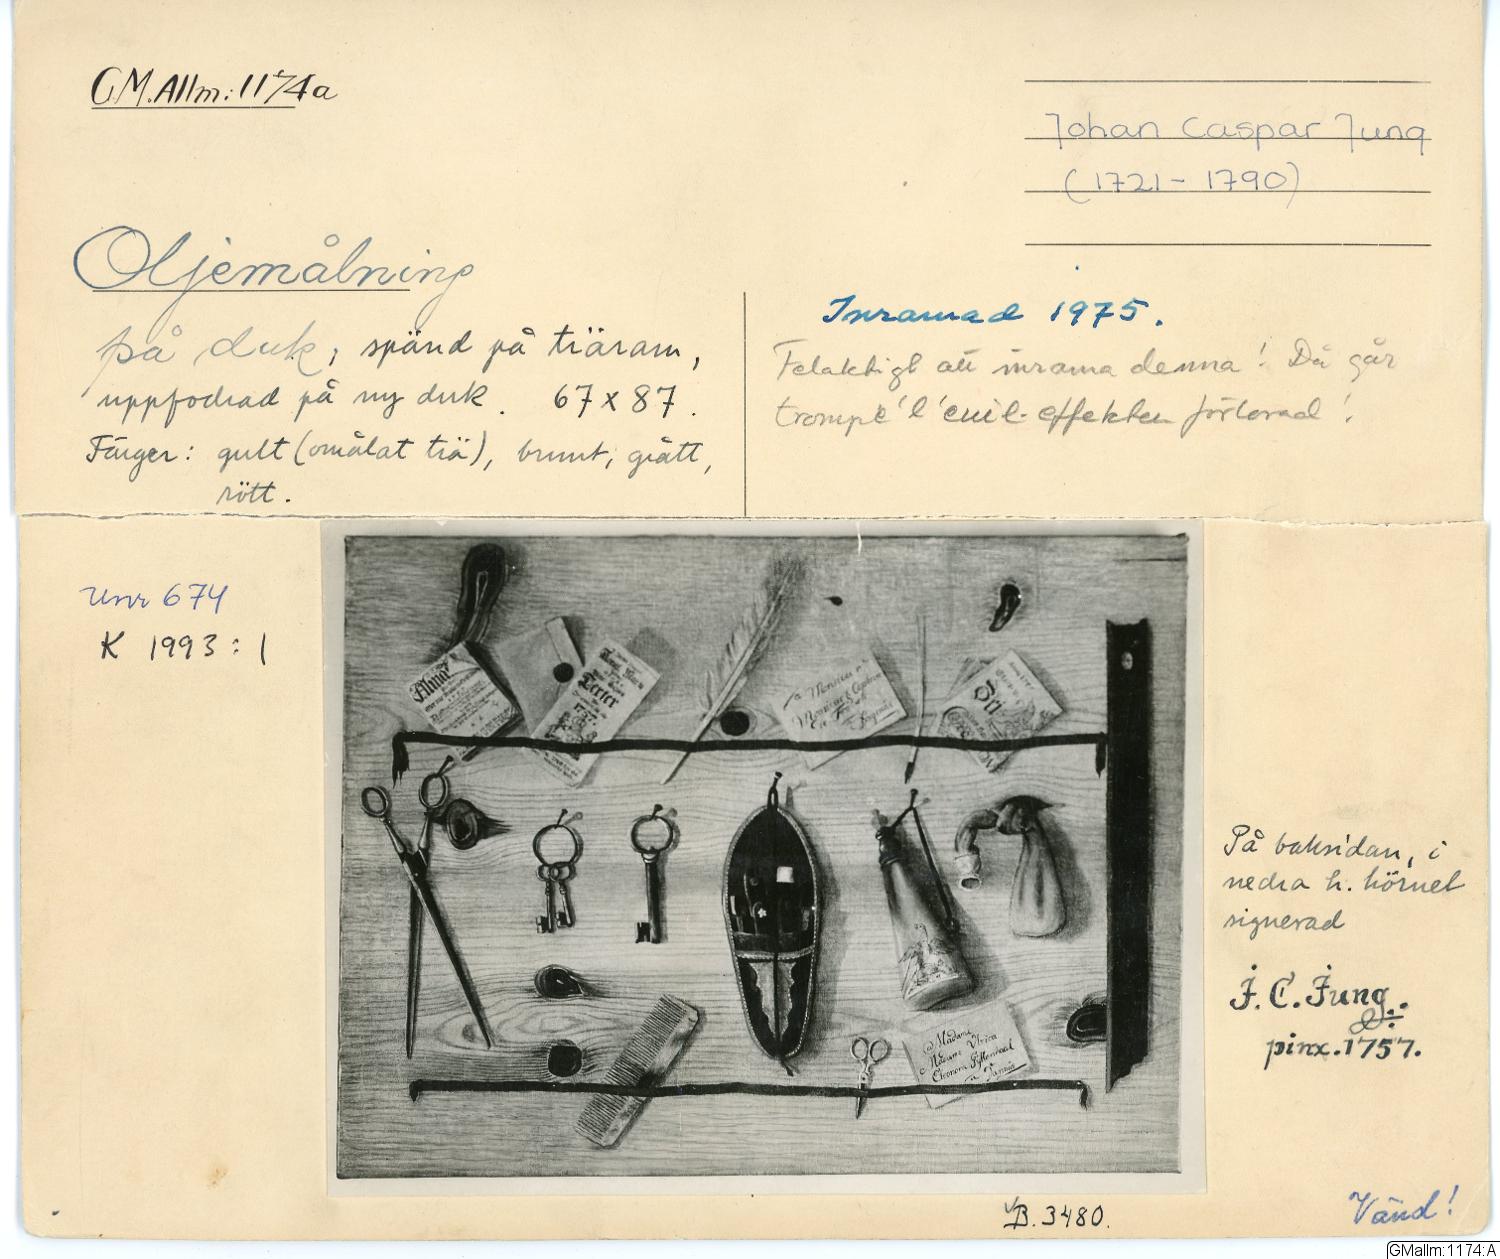 G.M.Allm:1174a
Johan Caspar Jung
(1721-1790)
Oljemålning
på duk, spänd på träram,
uppfodrad på ny duk. 67x87.
Färger: gult (omålat trä), brunt, grått,
rött.
Inramad 1975.
Felaktigt att inrama denna! Då går
trompe'l'oeil-effekten förlorad!
Unr 674
K 1993:1
Almac
1757.
à Monsieur
Monsieur
Madame
Madame Ulrica
Eleonora Gyllenhaal
På baksidan, i
nedra h. hörnet
signerad
J.C.Jung.
pinx.1757.
B.3480.
Vänd!
GMallm:1174:A